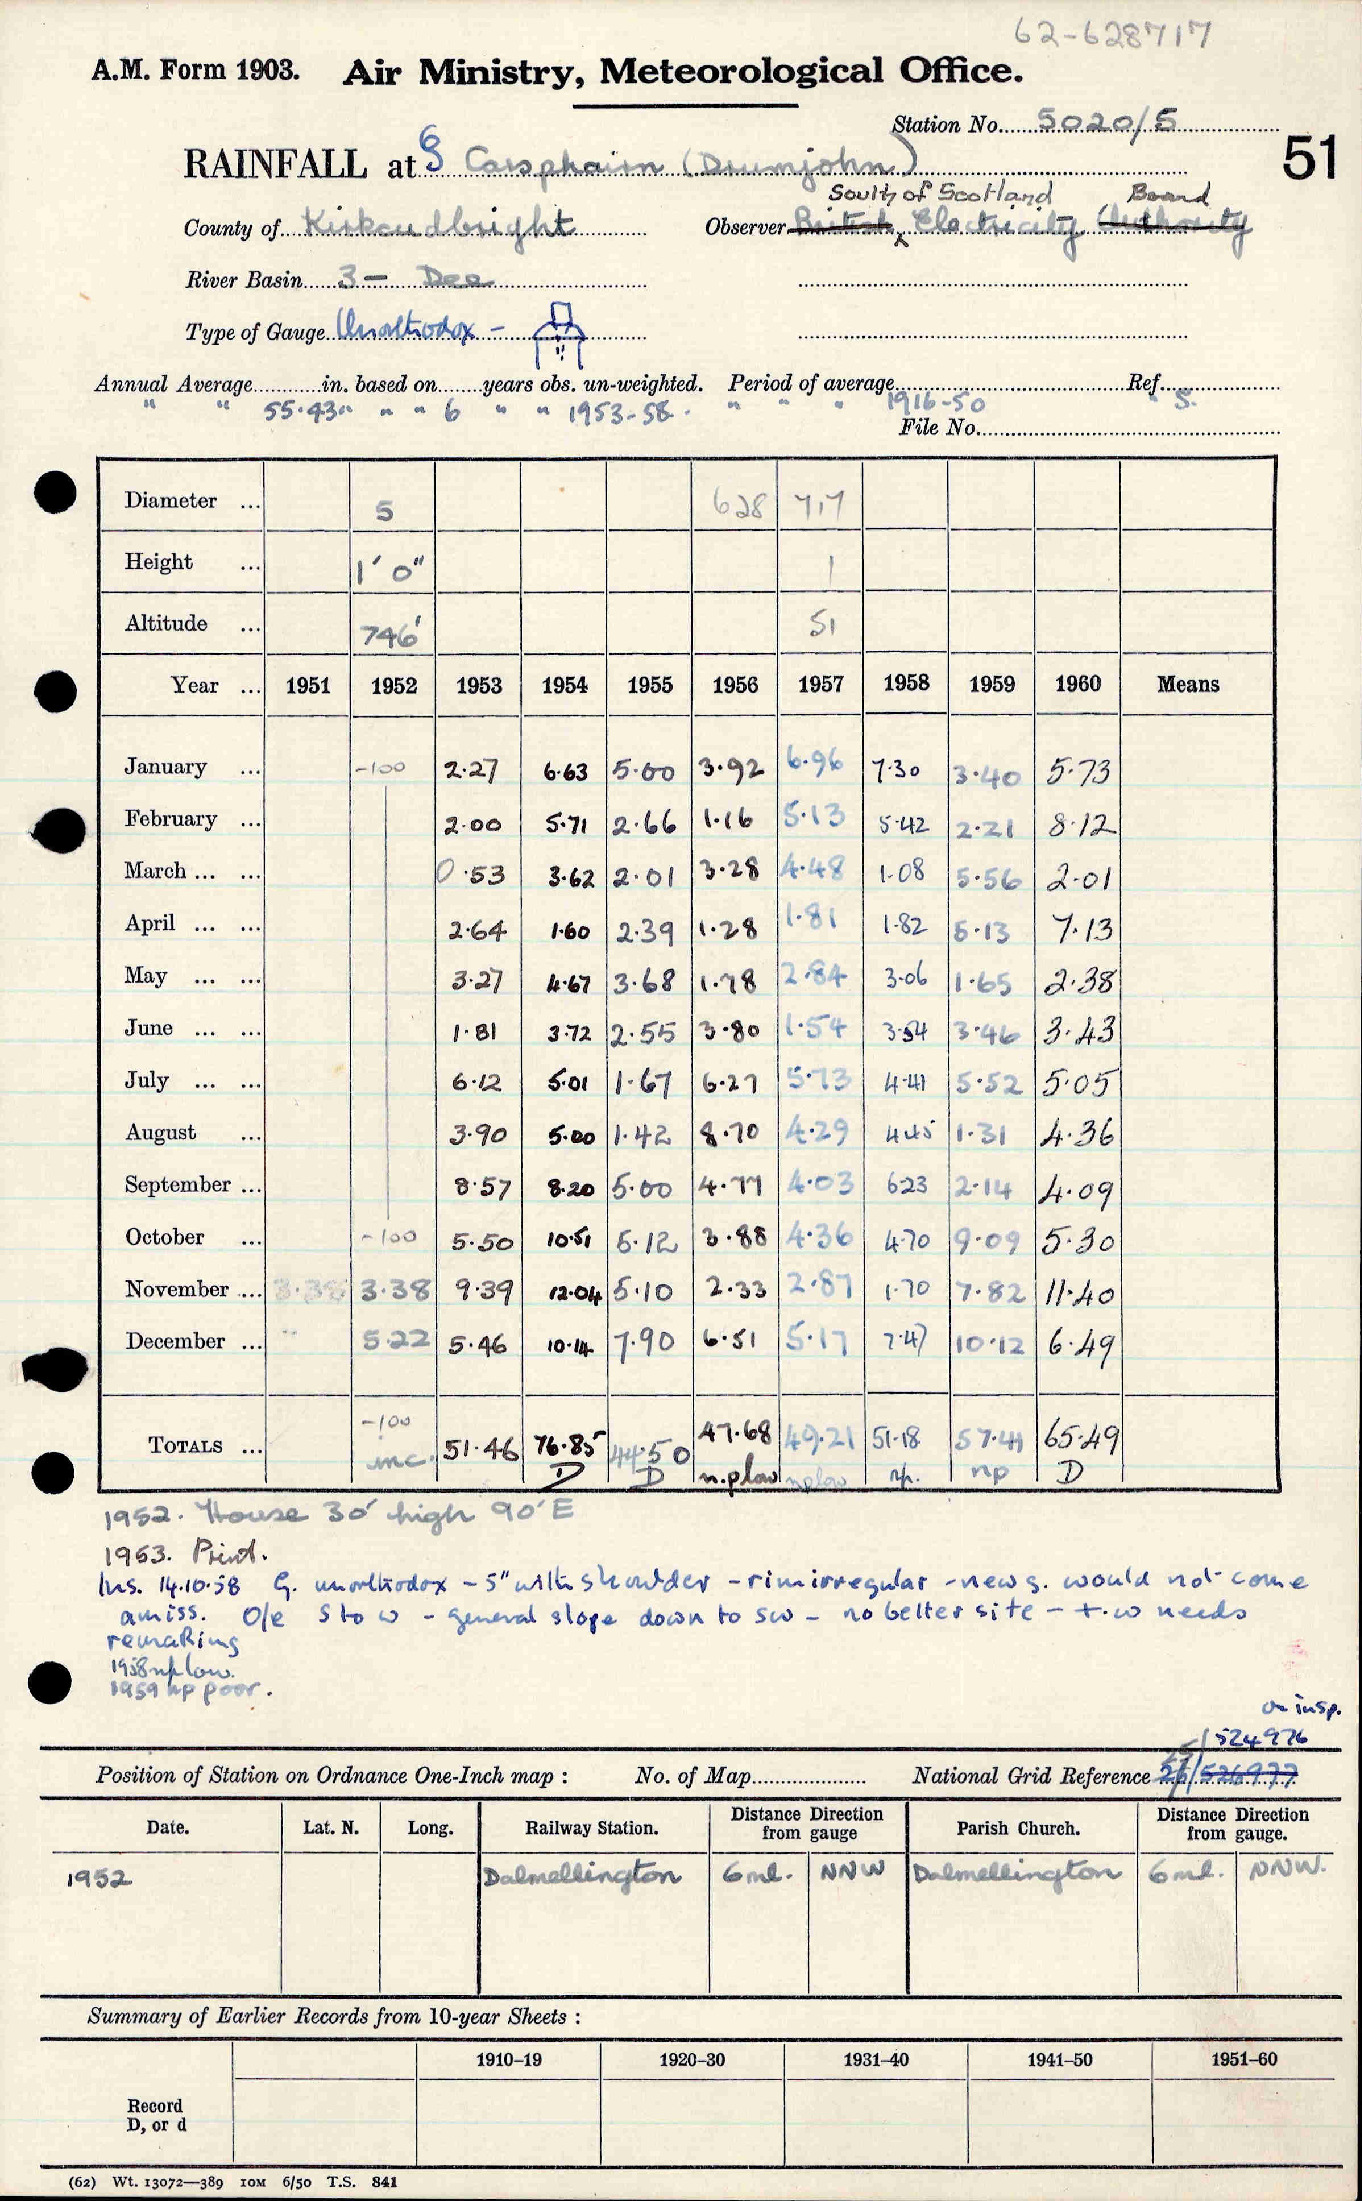 62-628717
A.M. Form 1903. Air Ministry, Meteorological Office.
Station No. 5020/5
51
RAINFALL at § Carsphairn (Drumjohn)
South of Scotland Board
County of Kirkcudbright Observer British Electricity Authority
River Basin 3 - Dee
Type of Gauge Unorthodox -
Annual Average in. based on years obs. un-weighted. Period of average Ref.
" " 55.43" " " 6 " " 1953-58. " " " 1916-50 " S.
File No.
Diameter ... 5 628 717
Height ... 1' 0" 1
Altitude ... 746' 51
Year ... 1951 1952 1953 1954 1955 1956 1957 1958 1959 1960 Means
January ... -100 2.27 6.63 5.00 3.92 6.96 7.30 3.40 5.73
February ... 2.00 5.71 2.66 1.16 5.13 5.42 2.21 8.12
March ... ... 0.53 3.62 2.01 3.28 4.48 1.08 5.56 2.01
April ... ... 2.64 1.60 2.39 1.28 1.81 1.82 5.13 7.13
May ... ... 3.27 4.67 3.68 1.78 2.84 3.06 1.65 2.38
June ... ... 1.81 3.72 2.55 3.80 1.54 3.54 3.46 3.43
July ... ... 6.12 5.01 1.67 6.27 5.73 4.41 5.52 5.05
August ... 3.90 5.00 1.42 8.70 4.29 4.45 1.31 4.36
September ... 8.57 8.20 5.00 4.77 4.03 6.23 2.14 4.09
October ... -100 5.50 10.51 5.12 3.88 4.36 4.70 9.09 5.30
November ... 3.38 3.38 9.39 12.04 5.10 2.33 2.87 1.70 7.82 11.40
December ... " 5.22 5.46 10.14 7.90 6.51 5.17 7.47 10.12 6.49
-100
TOTALS ... inc. 51.46 76.85 44.50 47.68 49.21 51.18 57.41 65.49
D D n.p low np low n.p. np D
1952. House 30' high 90' E
1953. Print.
Ins. 14.10.58 G. unorthodox - 5" with shoulder - rim irregular - new g. would not come
amiss. O/e S to W - general slope down to SW - no better site - t.w needs
remaking
1958 np low.
1959 np poor.
on insp.
25/524976
Position of Station on Ordnance One-Inch map : No. of Map National Grid Reference 26/526977
Date. Lat. N. Long. Railway Station. Distance Direction from gauge Parish Church. Distance Direction from gauge.
1952 Dalmellington 6 ml. NNW Dalmellington 6 ml. NNW.
Summary of Earlier Records from 10-year Sheets :
1910–19 1920–30 1931–40 1941–50 1951–60
Record
D, or d
(62) Wt. 13072—389 10M 6/50 T.S. 841